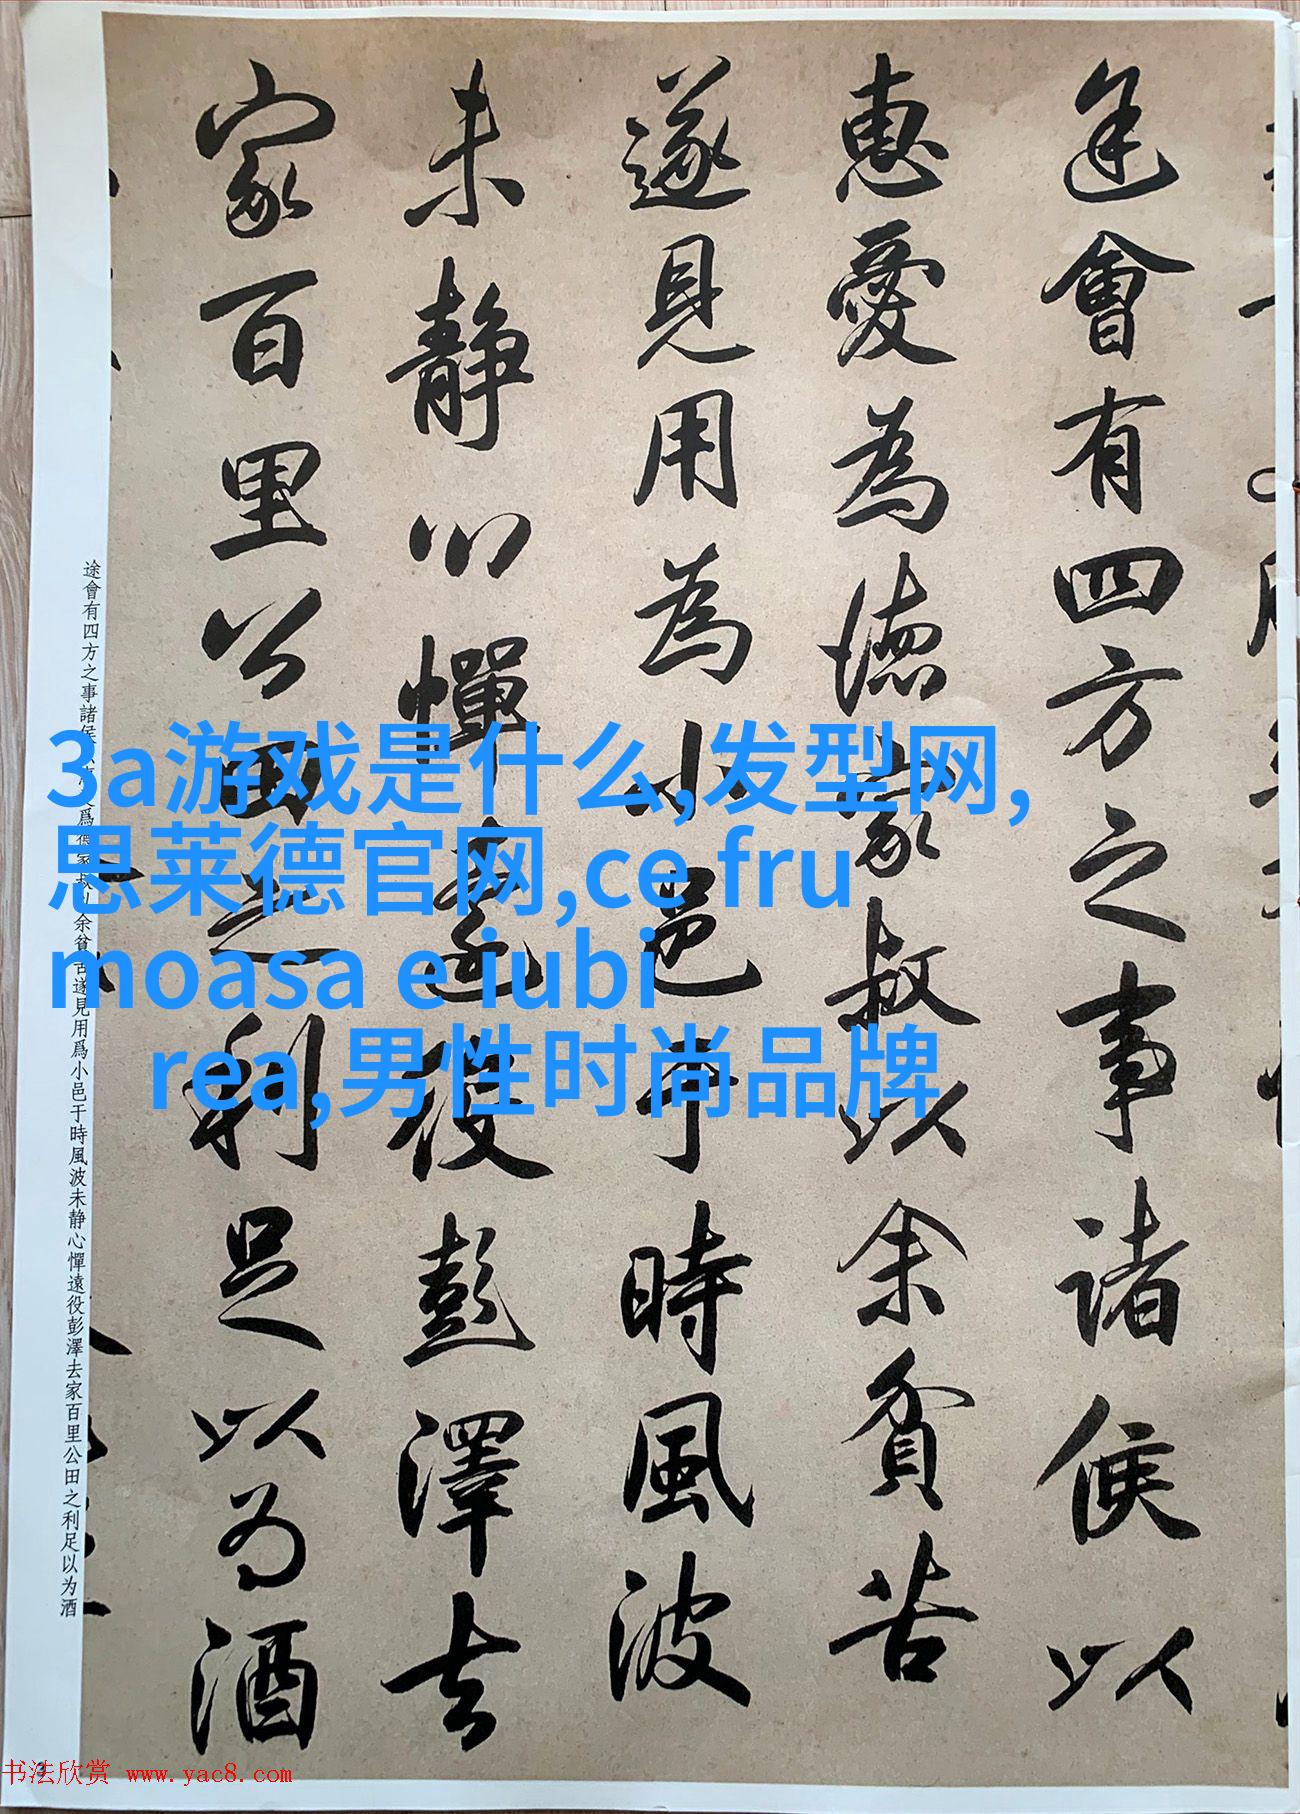 途會有四方之事諸侯以
惠愛為德家叔以余貧苦
遂見用為小邑于時風波
未静心憚遠役彭澤去
家百里公田之利足以為酒
3a游戏是什么,发型网,
思莱德官网,ce fru
moasa e iubi
rea,男性时尚品牌
途會有四方之事諸侯以惠愛爲德家叔以余貧苦遂見用爲小邑于時風波未静心憚遠役彭澤去家百里公田之利足以为酒
书法欣赏 www.yac8.com